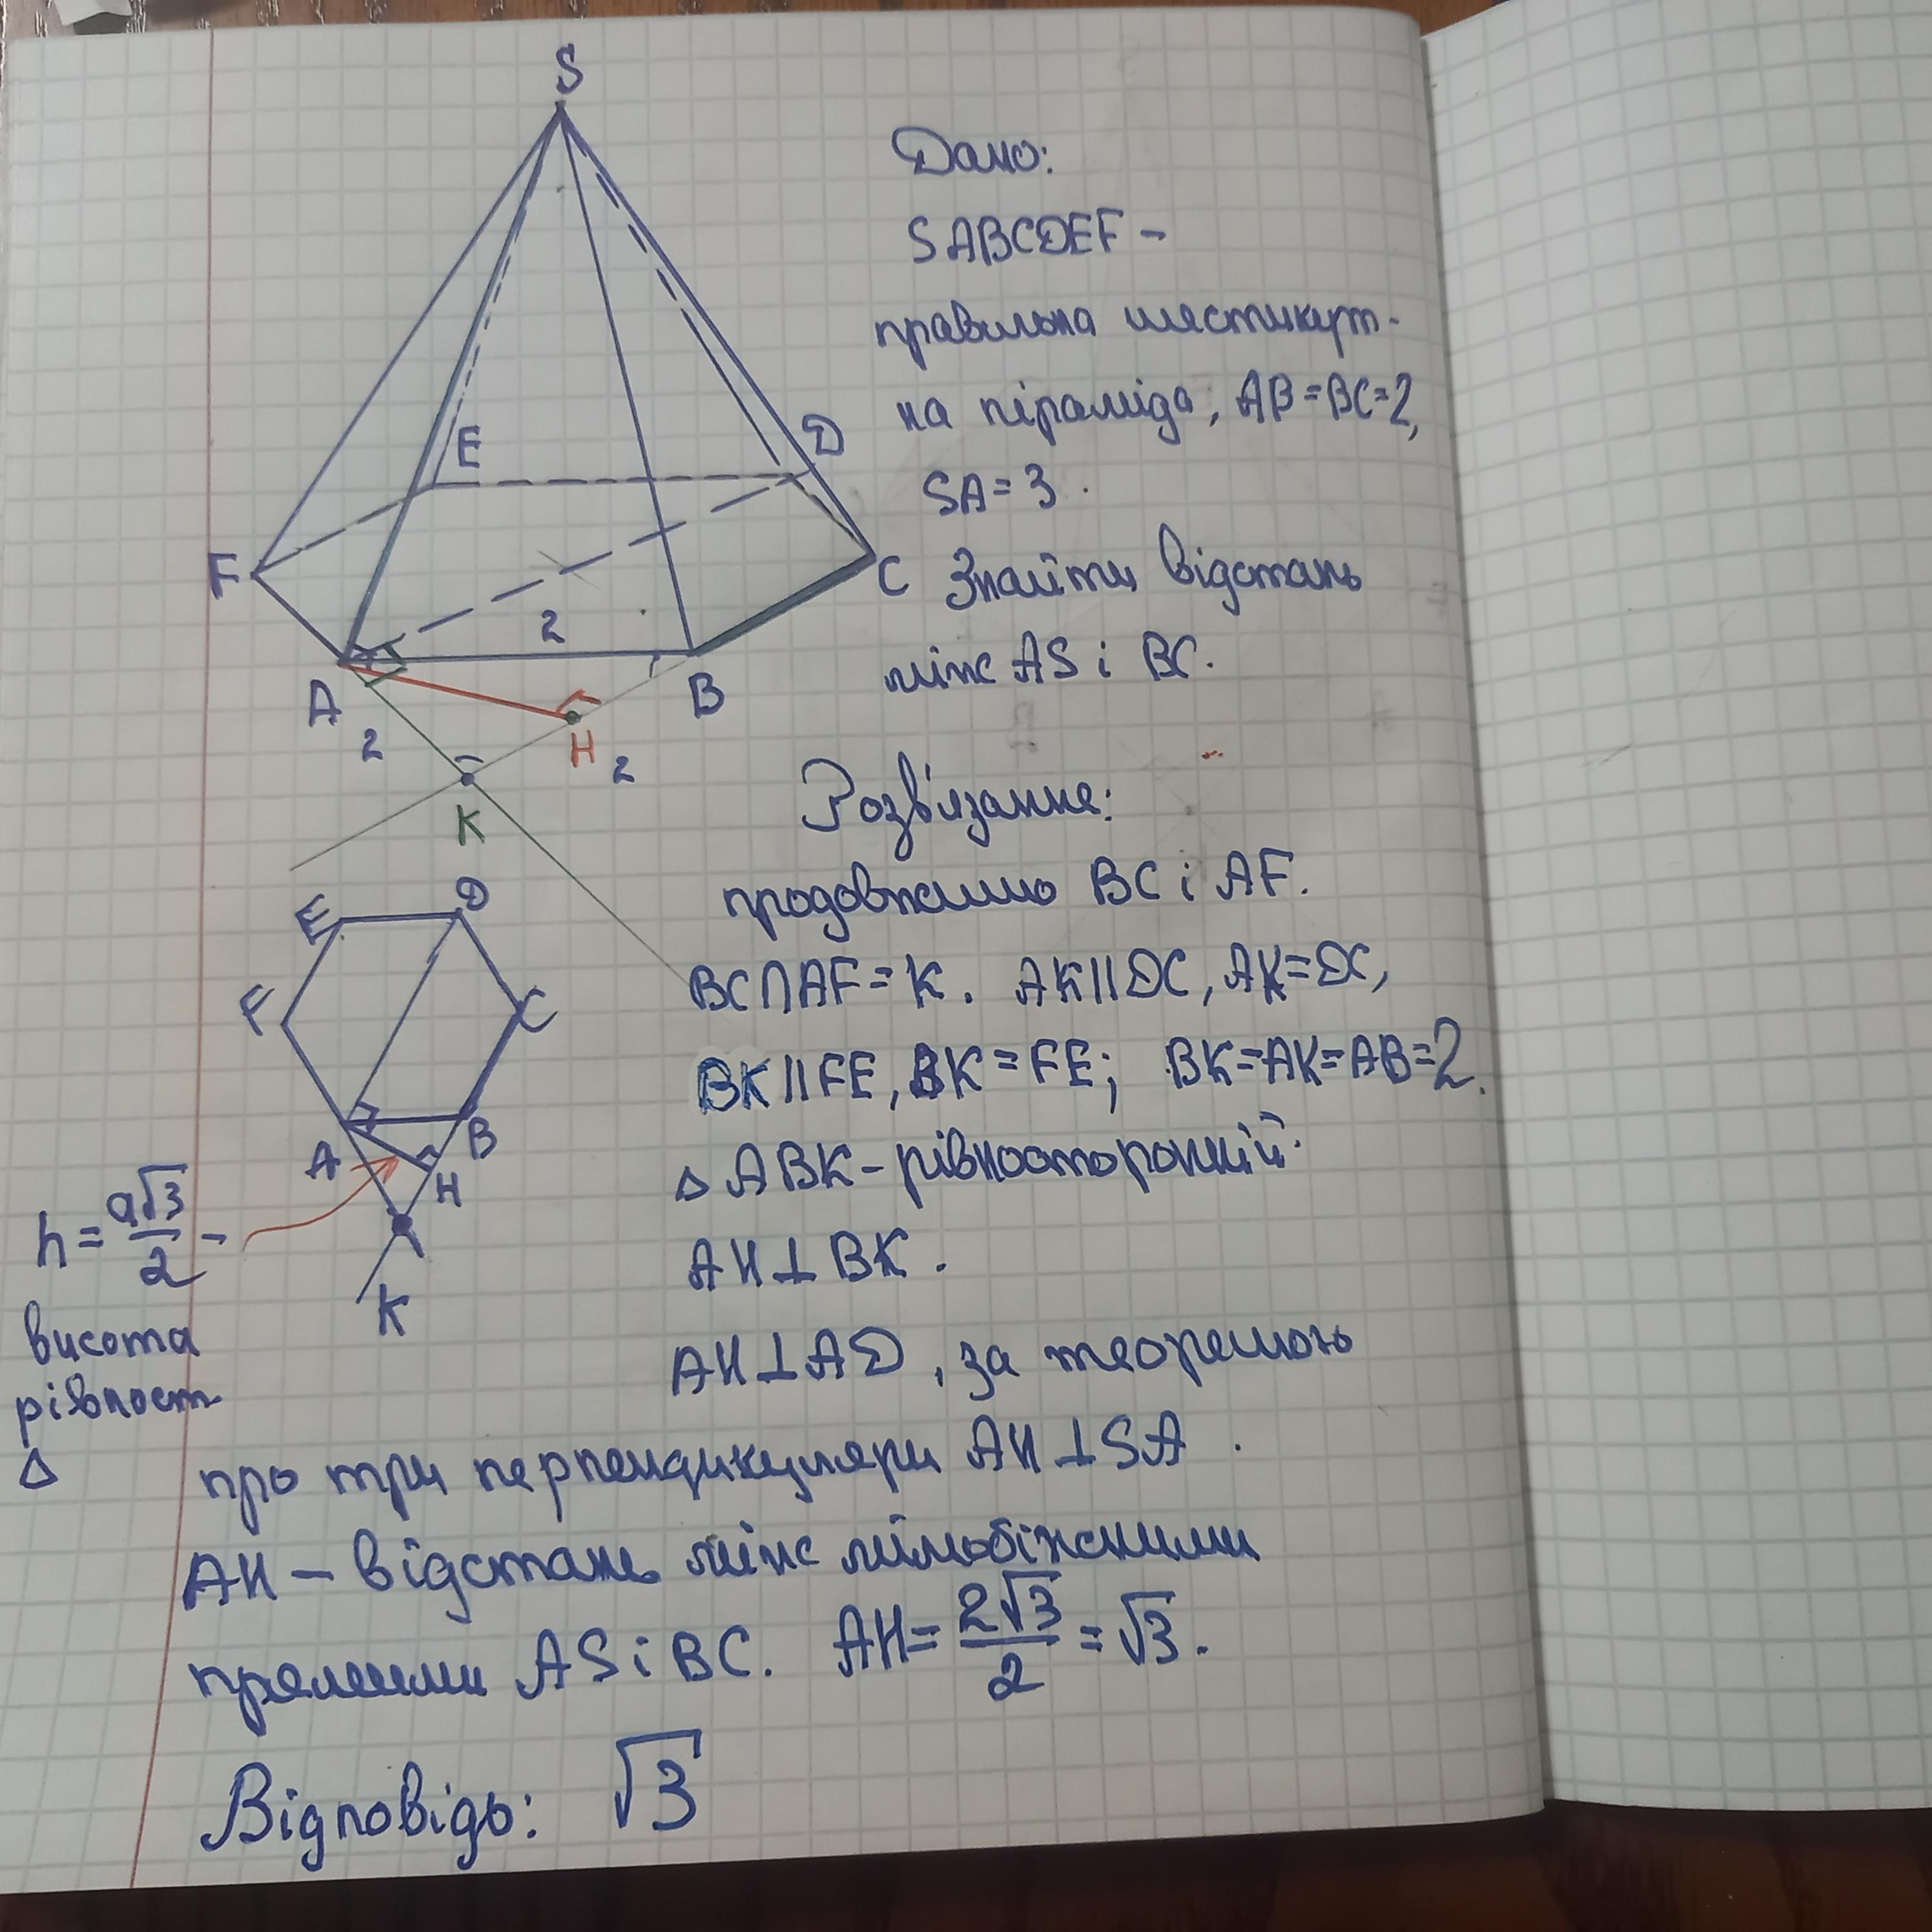 S
Дано:
SABCDEF -
правильна шестикут-
на піраміда, AB=BC=2,
SA=3.
E
D
F
C
Знайти відстань
2
між AS і BC.
A
B
2
H
2
K
Розв'язання:
продовжимо BC і AF.
BC∩AF=K. AK||DC, AK=DC,
BK||FE, BK=FE; BK=AK=AB=2.
△ABK-рівносторонній.
AH⊥BK.
E
D
F
C
A
B
H
K
h=a√3/2 -
висота
рівност
△
AH⊥AD, за теоремою
про три перпендикуляри AH⊥SA.
AH - відстань між мимобіжними
прямими AS і BC. AH=2√3/2=√3.
Відповідь: √3